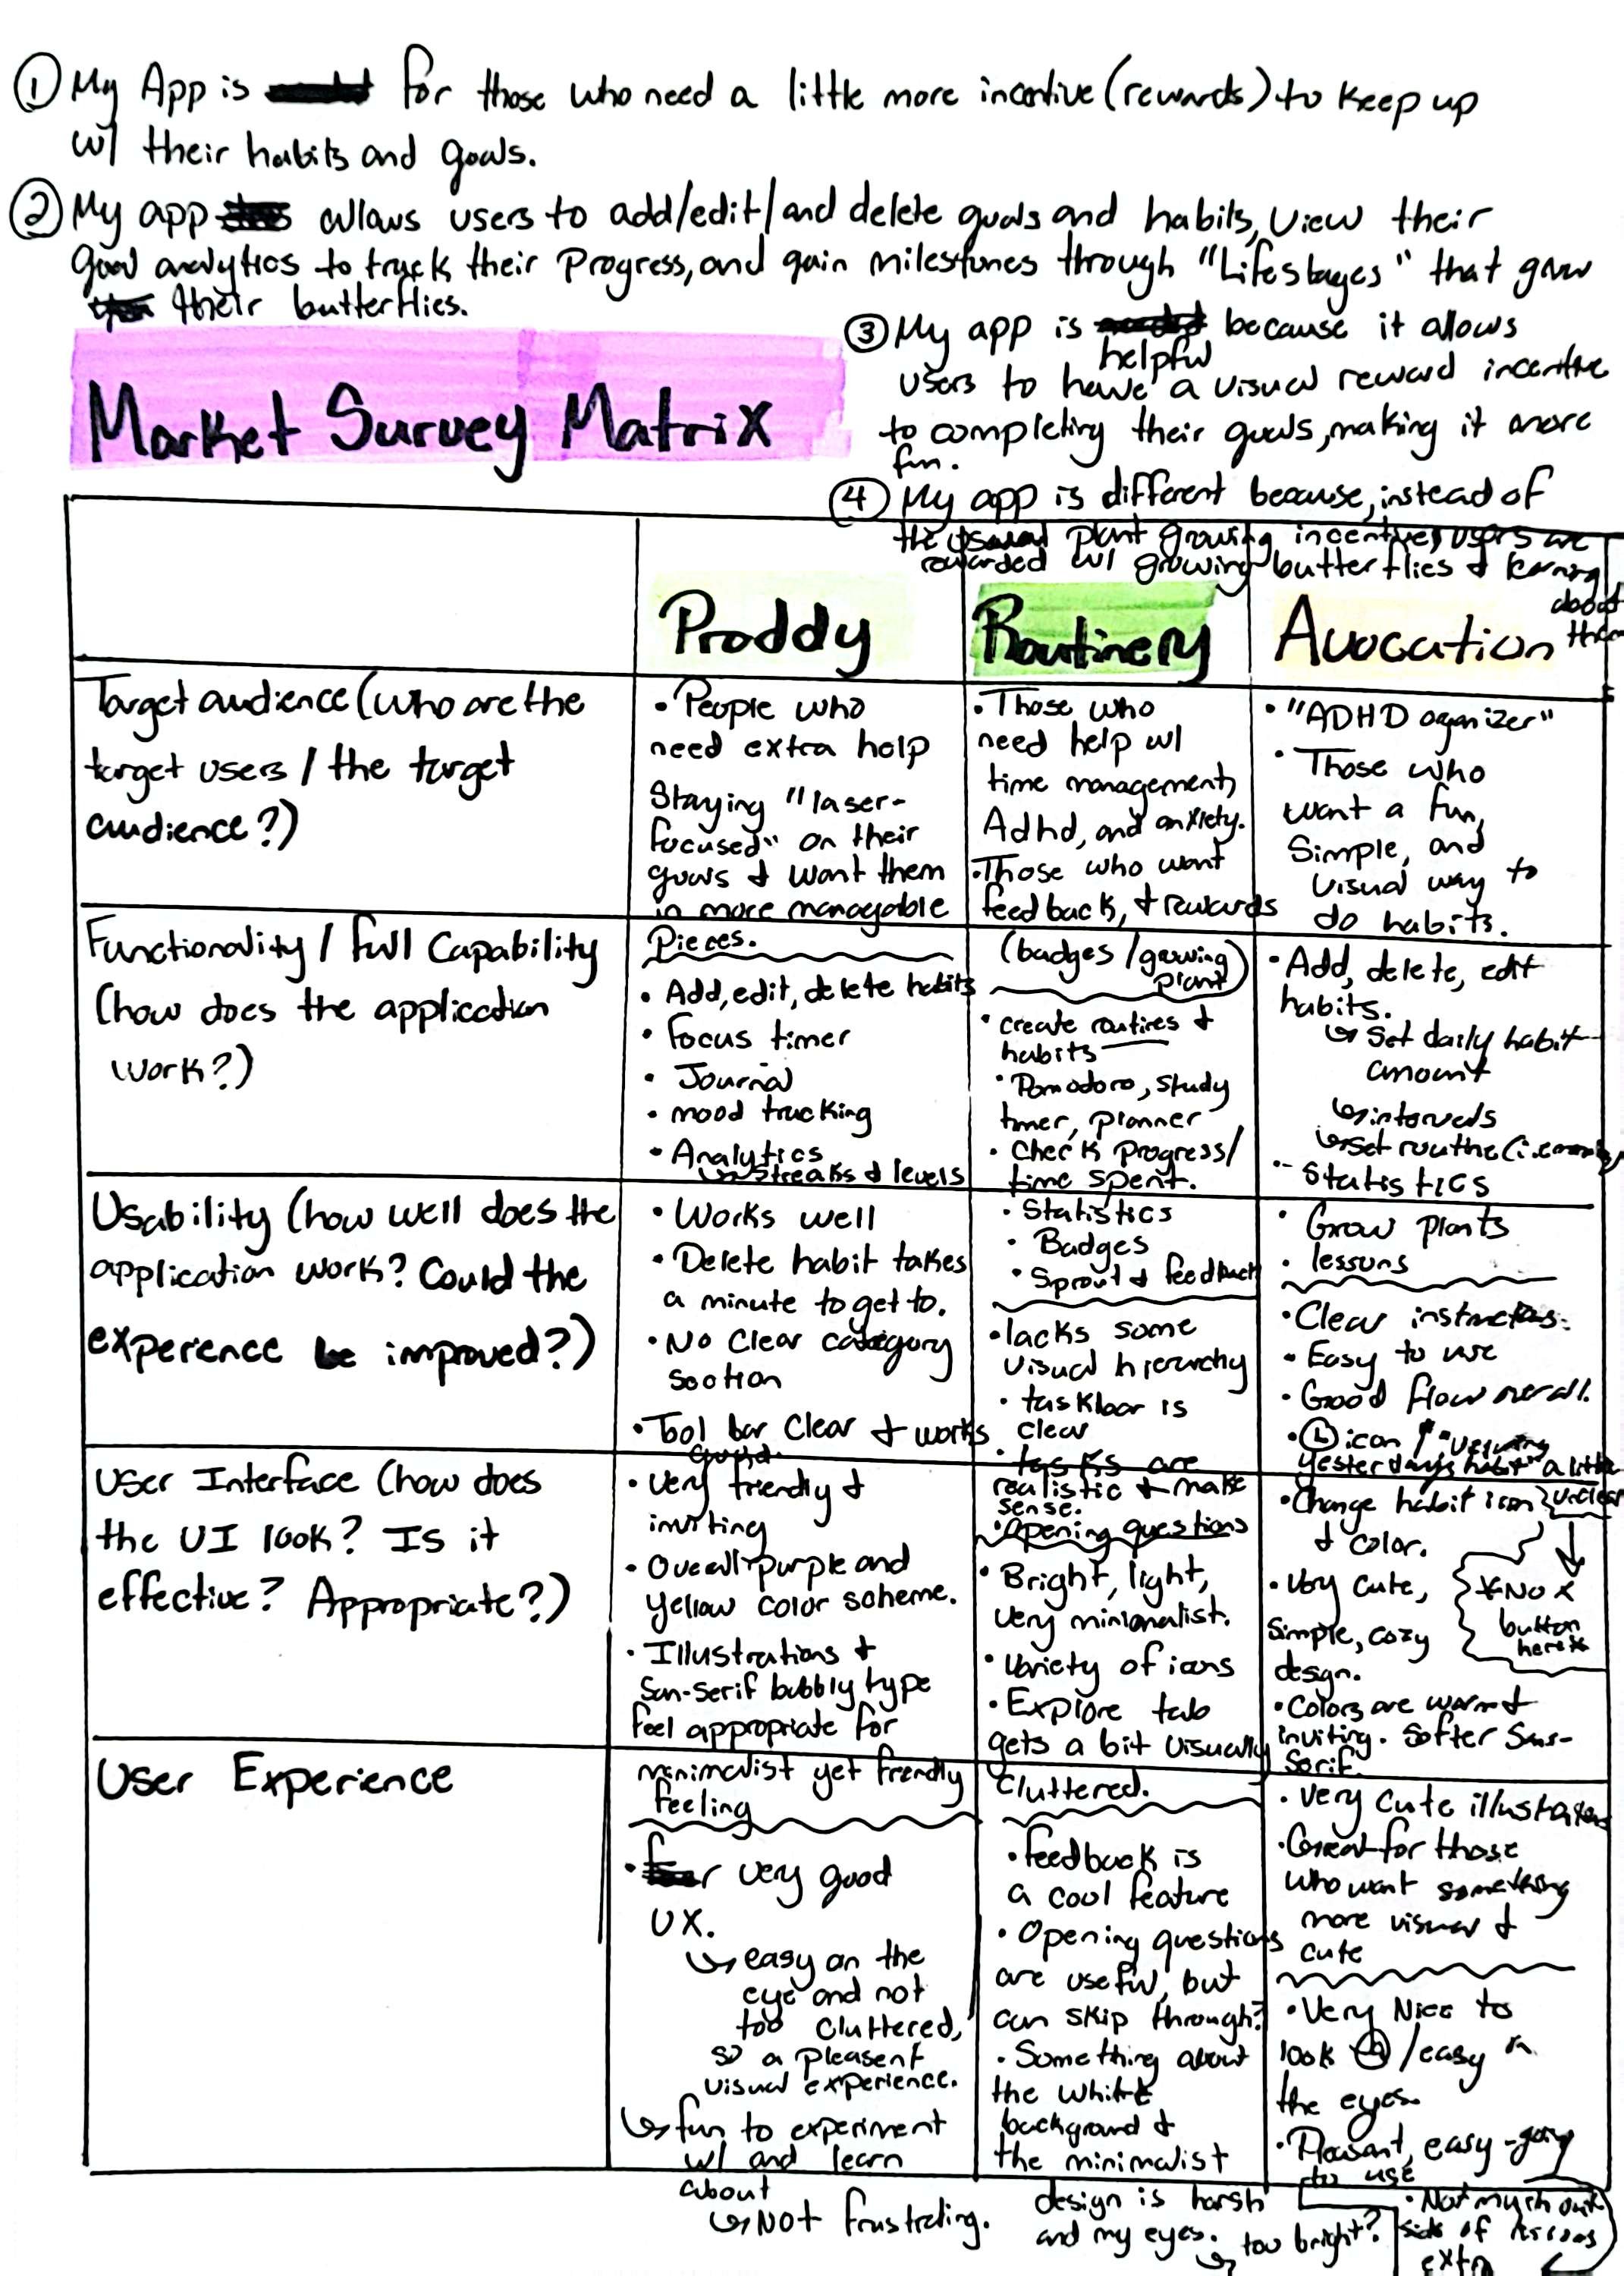 ① My App is for those who need a little more incentive (rewards) to keep up
w/ their habits and goals.
② My app allows users to add/edit/and delete goals and habits, view their
goal analytics to track their progress, and gain milestones through "Lifestages" that grow
their butterflies.
③ My app is helpful because it allows
users to have a visual reward incentive
to completing their goals, making it more
fun.
④ My app is different because, instead of
the usual plant growing incentive, users are
rewarded w/ growing butterflies & learning
about
them
Market Survey Matrix
Proddy
Routinery
Avocation
Target audience (who are the
target users / the target
audience?)
• People who
need extra help
Staying "laser-
focused" on their
goals & want them
in more managable
Pieces.
• Those who
need help w/
time management,
Adhd, and anxiety.
• Those who want
feedback, & rewards
(badges / growing
plant)
• "ADHD oganizer"
• Those who
want a fun,
Simple, and
visual way to
do habits.
Functionality / full Capability
(how does the application
work?)
• Add, edit, delete habits
• Focus timer
• Journal
• mood tracking
• Analytics
↳ Streaks & levels
• create routines &
habits
• Pomodoro, study
timer, planner
• Check Progress/
time spent.
• Statistics
• Badges
• Sprout & feedback
• Add, delete, edit
habits.
↳ Set daily habit
amount
↳ intervals
↳ set routine
• Statistics
• Grow plants
• lessons
Usability (how well does the
application work? Could the
experence be improved?)
• Works well
• Delete habit takes
a minute to get to.
• No Clear category
section
• Tool bar Clear & works
good.
• lacks some
visual hierarchy
• taskbar is
clear
• tasks are
realistic & make
sense.
• Opening questions
• Clear instructions.
• Easy to use
• Good flow overall.
• icon / "viewing
yesterday's habit" a little
unclear
*No X
button
here*
User Interface (how does
the UI look? Is it
effective? Appropriate?)
• Very friendly &
inviting
• Overall purple and
yellow color scheme.
• Illustrations &
San-serif bubbly type
feel appropriate for
minimalist yet friendly
feeling
• Bright, light,
very minimalist.
• Variety of icons
• Explore tab
gets a bit visually
Cluttered.
• Change habit icon
& color.
• Very cute,
Simple, cozy
design.
• Colors are warm &
inviting. Softer Sans-
Serif.
• Very cute illustrations
• Great for those
who want something
more visual &
cute
User Experience
• very good
UX.
↳ easy on the
eye and not
too cluttered,
so a pleasent
visual experience.
↳ fun to experiment
w/ and learn
about
↳ Not frustrating.
• feedback is
a cool feature
• Opening questions
are useful, but
can skip through?
• Something about
the white
background &
the minimalist
design is harsh
and my eyes.
↳ too bright?
• Very Nice to
look @ /easy on
the eyes.
• Pleasant, easy-going
to use
• Not much out
side of lessons
extra